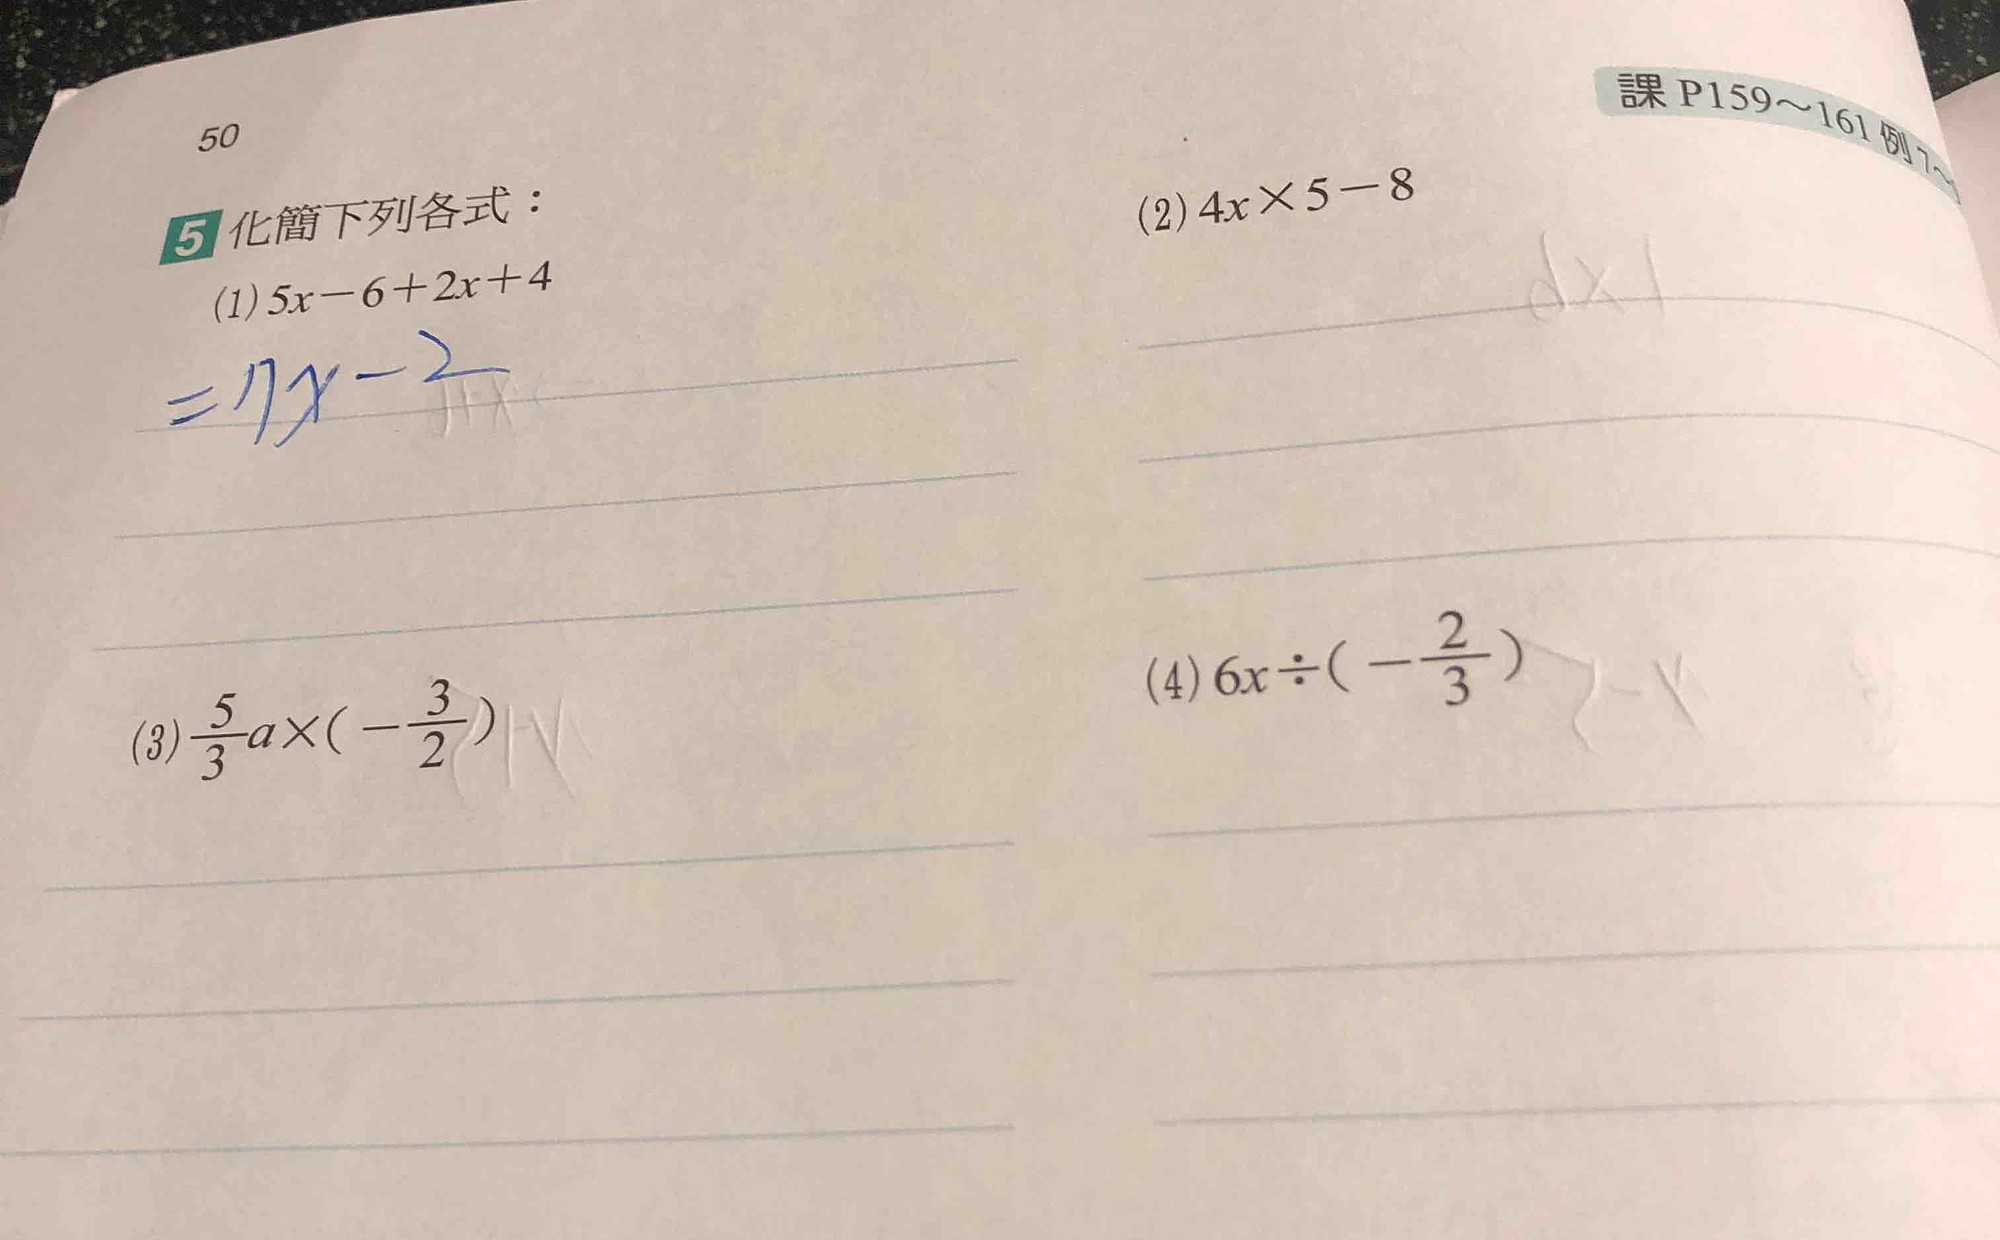 50
課 P159～161 例 7～
5 化簡下列各式：
(1) 5x－6＋2x＋4
= 7x - 2
(2) 4x×5－8
(3) 5/3 a×(－3/2)
(4) 6x÷(－2/3)